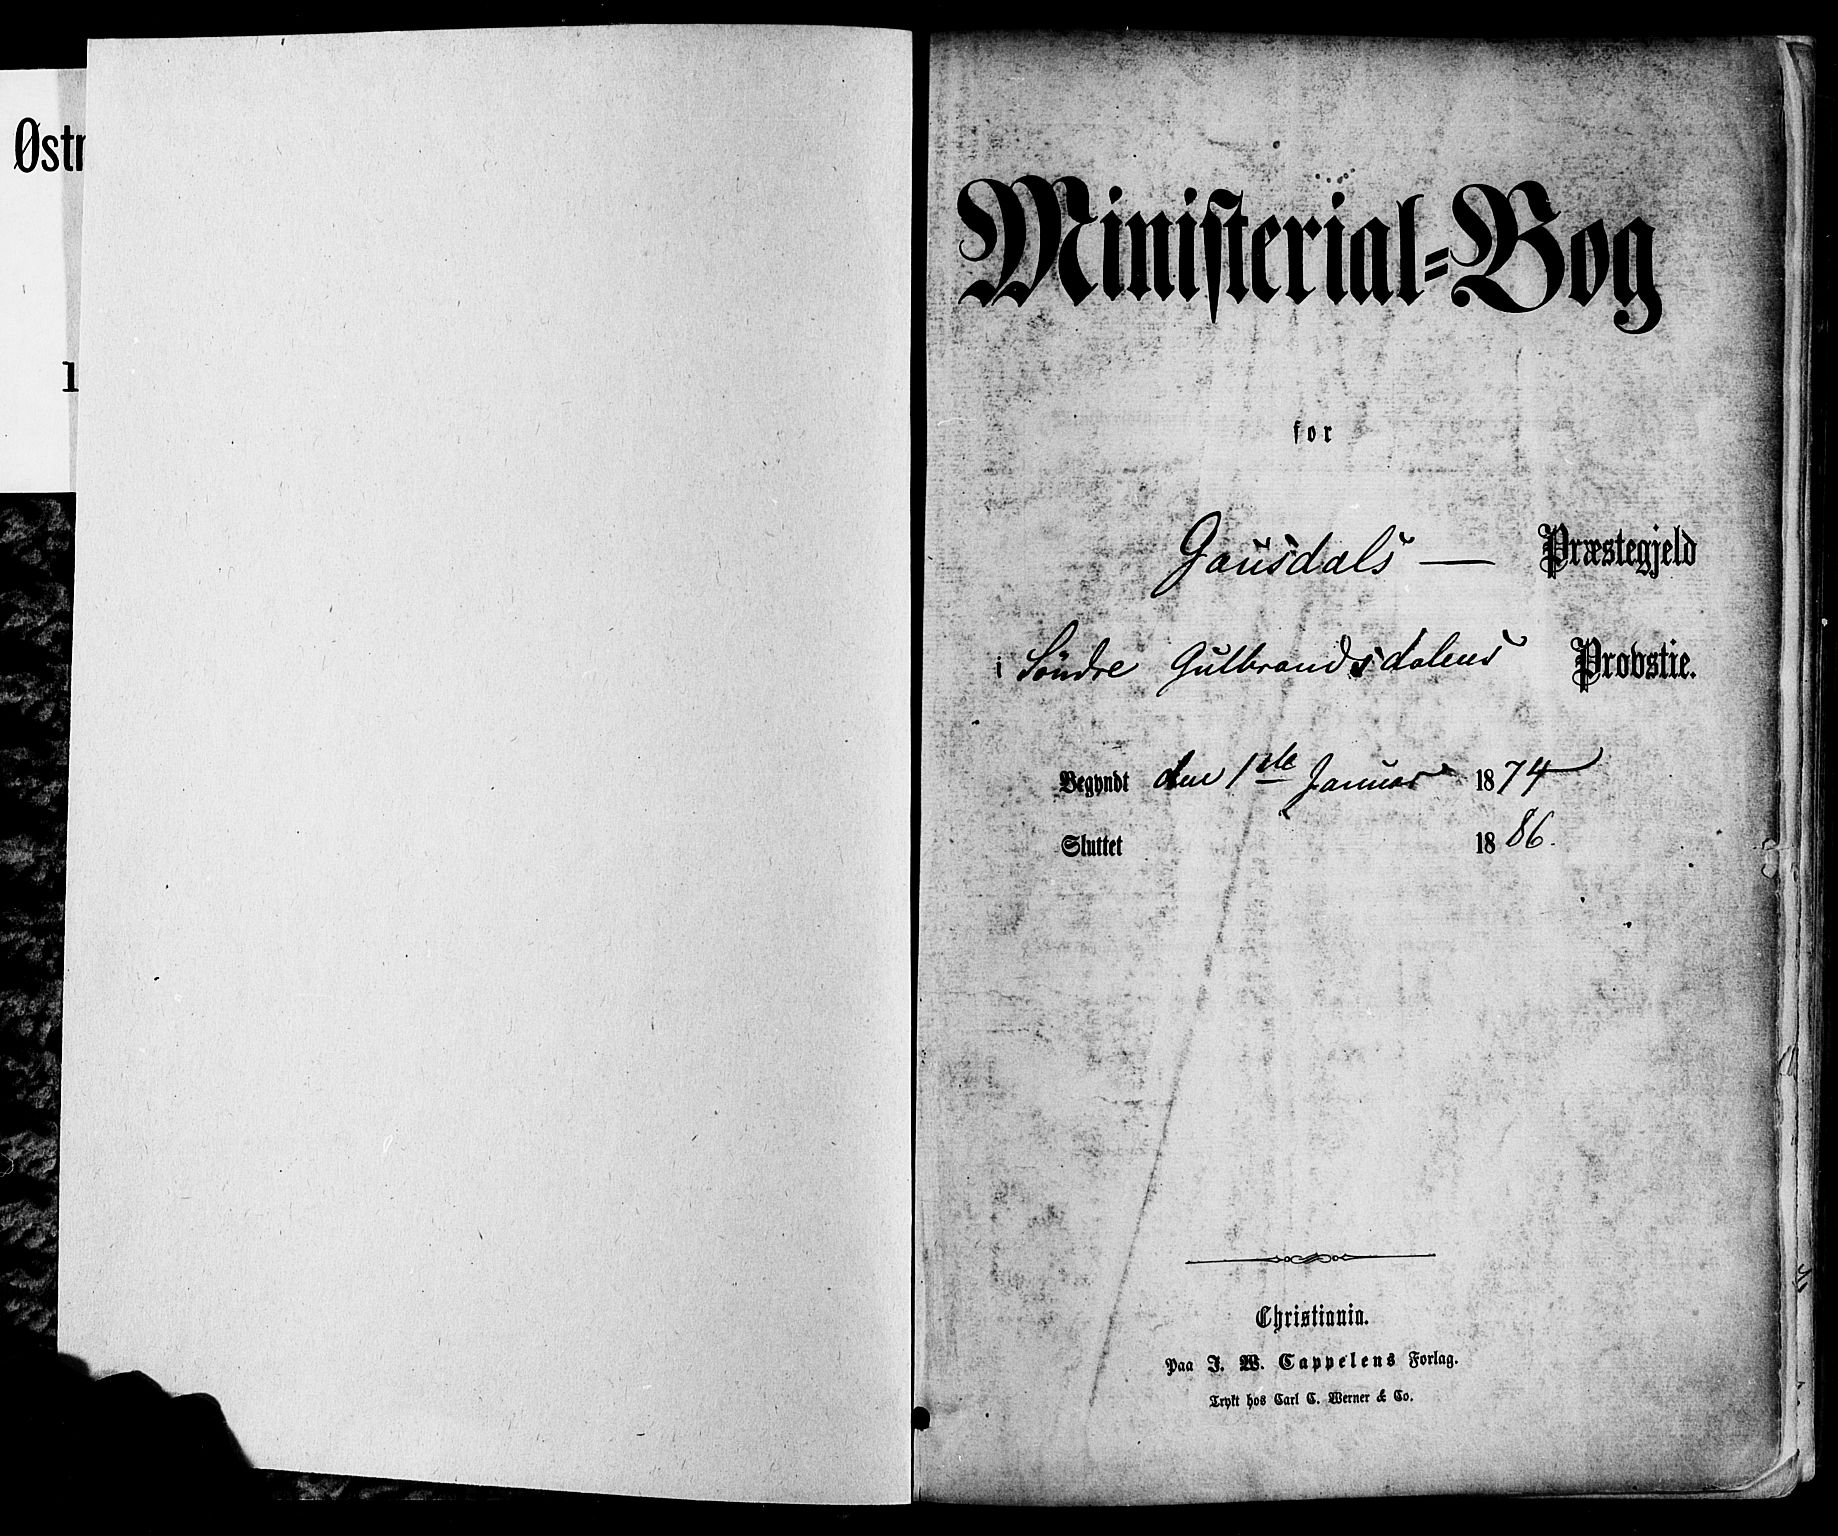 Østr
1
Ministerial-Bog
for
Gausdals — Præstegjeld
i Søndre Gulbrandsdalens Provstie.
Begyndt den 1ste Januar 1874
Sluttet 1886.
Christiania.
Paa J. W. Cappelens Forlag.
Trykt hos Carl C. Werner & Co.